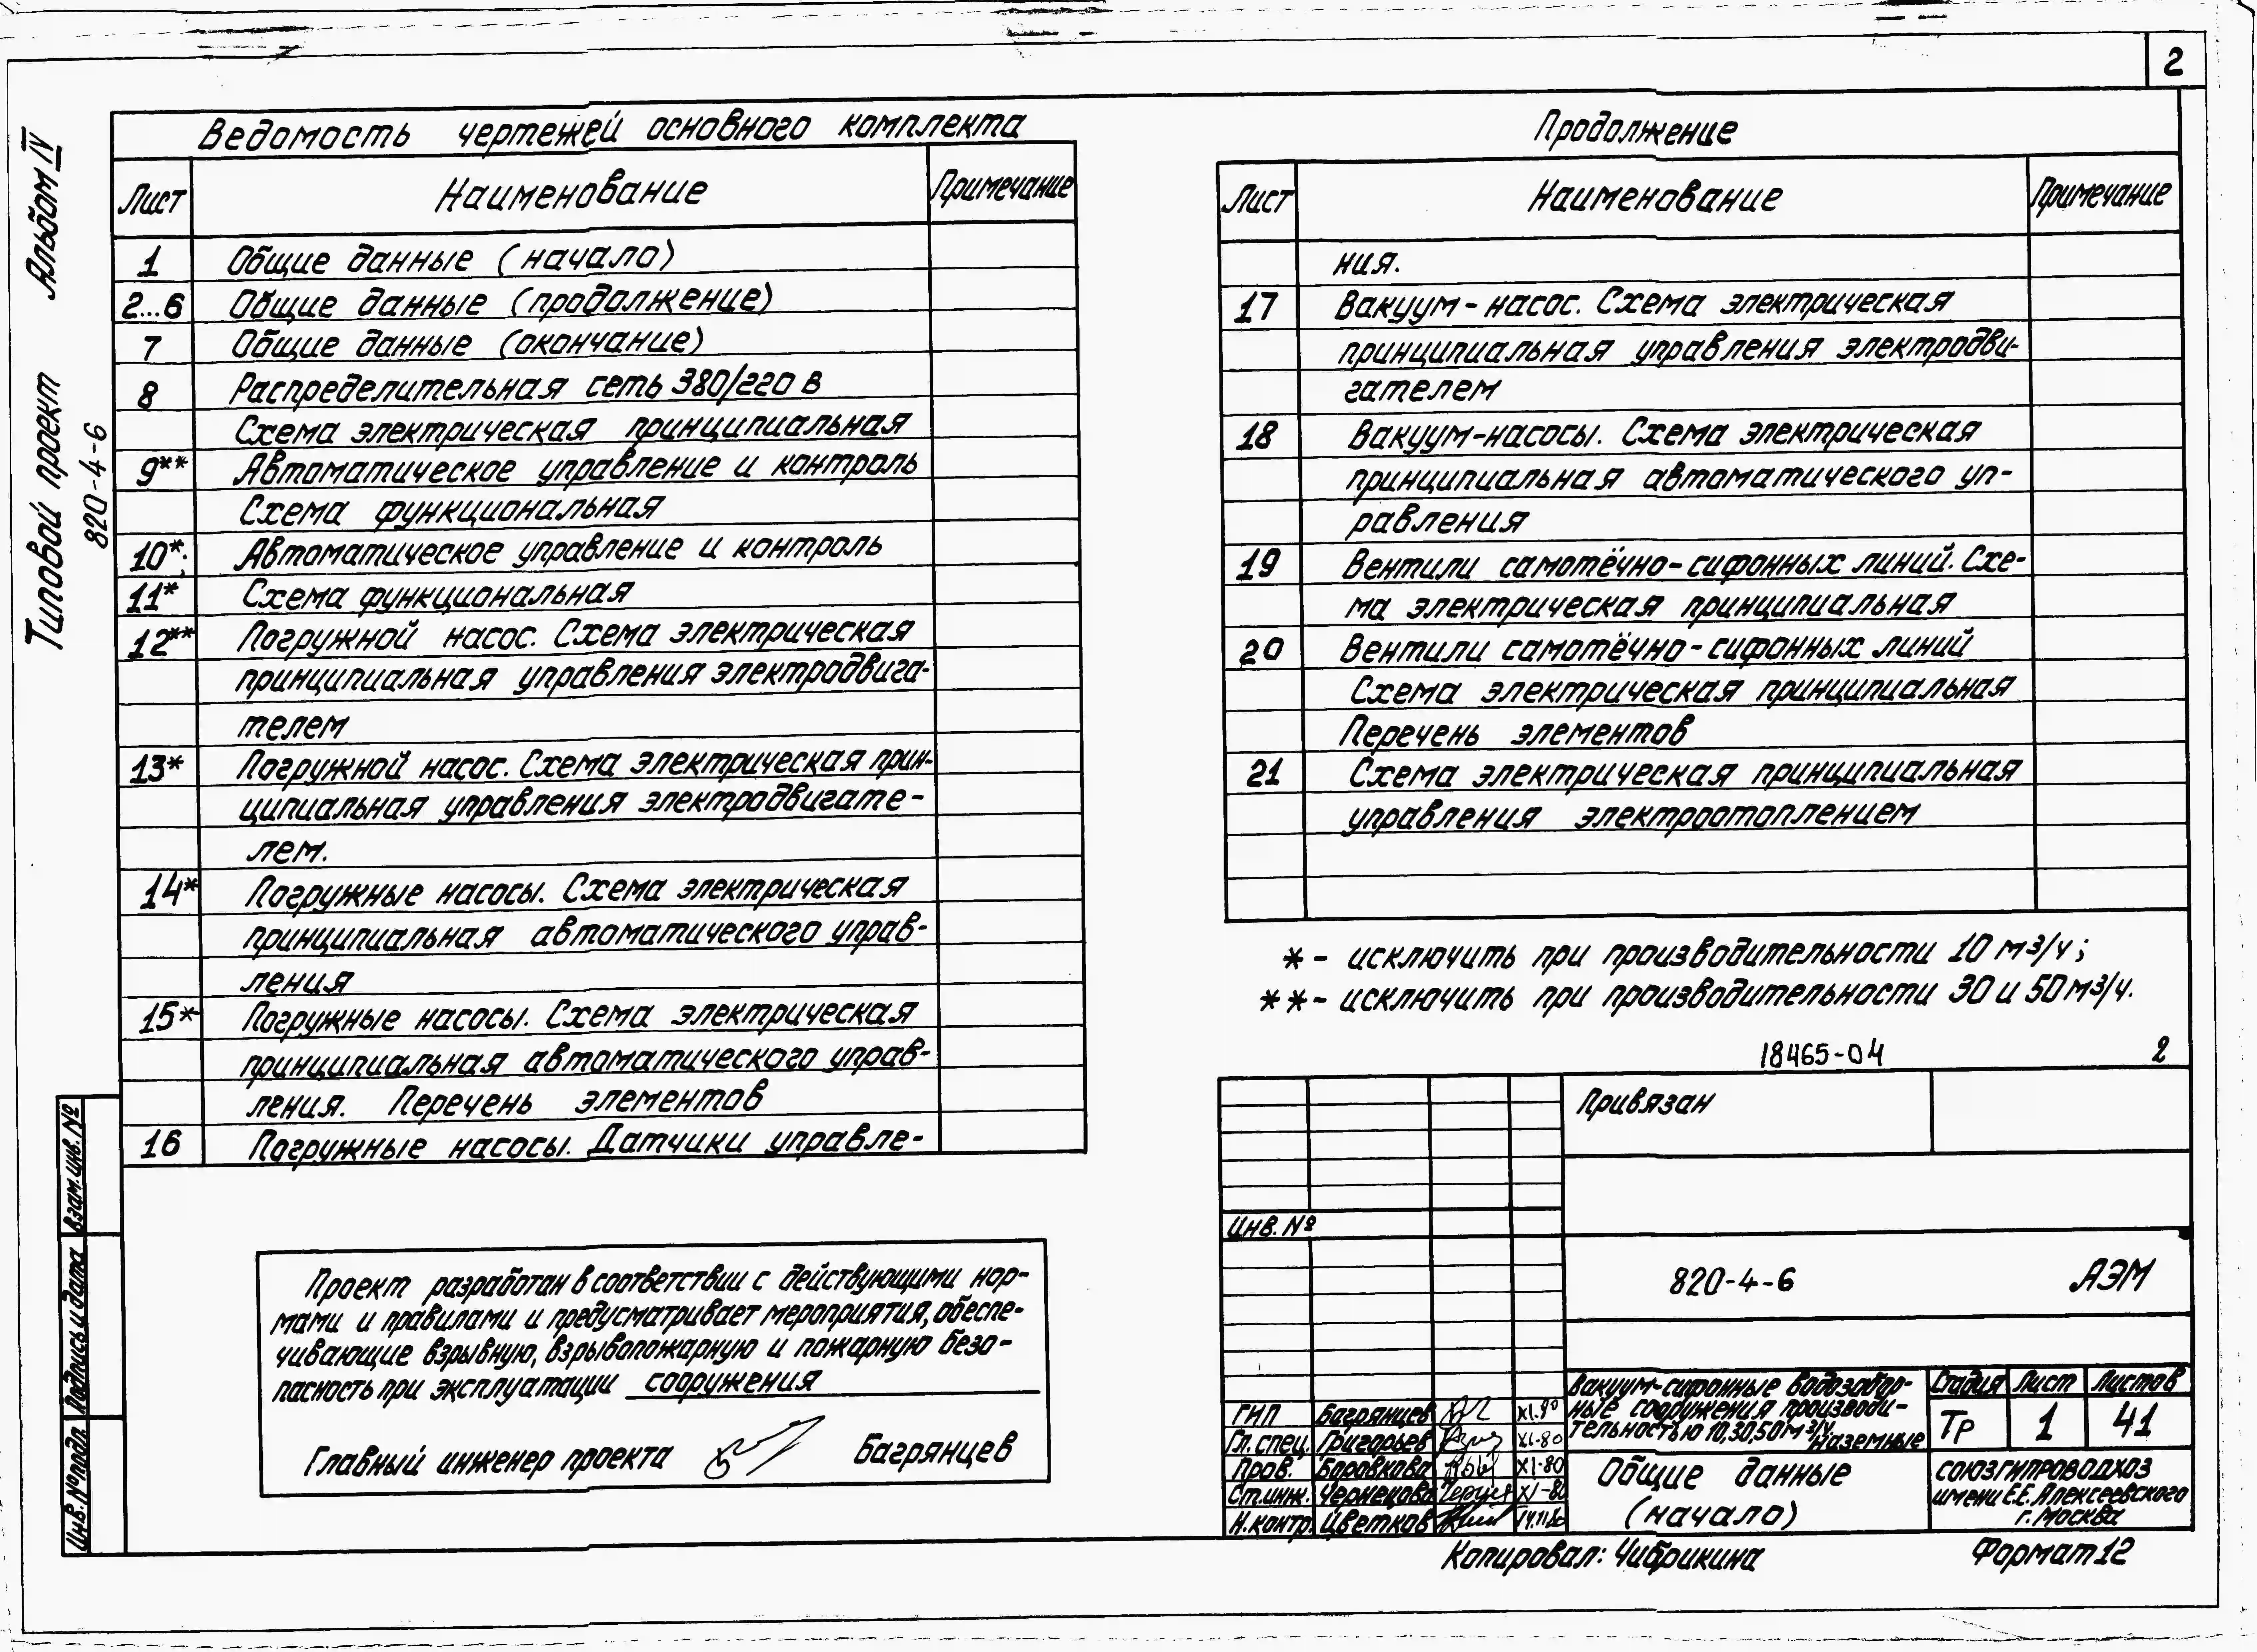 2
Типовой проект Альбом IV
820-4-6
Ведомость чертежей основного комплекта
Лист Наименование Примечание
1 Общие данные (начало)
2...6 Общие данные (продолжение)
7 Общие данные (окончание)
8 Распределительная сеть 380/220 в
Схема электрическая принципиальная
9** Автоматическое управление и контроль
Схема функциональная
10*; Автоматическое управление и контроль
11* Схема функциональная
12** Погружной насос. Схема электрическая
принципиальная управления электродвига-
телем
13* Погружной насос. Схема электрическая прин-
ципиальная управления электродвигате-
лем.
14* Погружные насосы. Схема электрическая
принципиальная автоматического управ-
ления
15* Погружные насосы. Схема электрическая
принципиальная автоматического управ-
ления. Перечень элементов
16 Погружные насосы. Датчики управле-
Продолжение
Лист Наименование Примечание
ния.
17 Вакуум-насос. Схема электрическая
принципиальная управления электродви-
гателем
18 Вакуум-насосы. Схема электрическая
принципиальная автоматического уп-
равления
19 Вентили самотёчно-сифонных линий. Схе-
ма электрическая принципиальная
20 Вентили самотёчно-сифонных линий
Схема электрическая принципиальная
Перечень элементов
21 Схема электрическая принципиальная
управления электроотоплением
* - исключить при производительности 10 м3/ч;
** - исключить при производительности 30 и 50 м3/ч.
18465-04 2
Проект разработан в соответствии с действующими нор-
мами и правилами и предусматривает мероприятия, обеспе-
чивающие взрывную, взрывопожарную и пожарную безо-
пасность при эксплуатации сооружения
Главный инженер проекта Багрянцев
Взам. инв. №
Подпись и дата
Инв. № подл.
Привязан
Инв. №
820-4-6 АЭМ
Вакуум-сифонные водозабор-
ные сооружения производи-
тельностью 10,30,50 м3/ч
Наземные
Стадия Лист Листов
Тр 1 41
ГИП Багрянцев XI.80
Гл. спец. Григорьев XI-80
Пров. Боровкова XI-80
Ст.инж. Чернецова XI-80
Н.контр. Цветков
Общие данные
(начало)
СОЮЗГИПРОВОДХОЗ
имени Е.Е. Алексеевского
г. Москва
Копировал: Чибрикина Формат 12